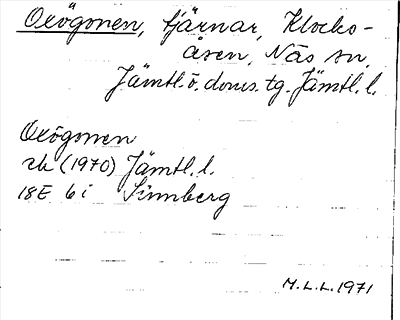 Oxögonen, tjärnar, Klocks-
åsen, Näs sn,
Jämtl. ö. doms. tg. Jämtl. l.
Oxögonen
rk (1970) Jämtl. l.
18E 6i Sunnberg
M.L.L. 1971